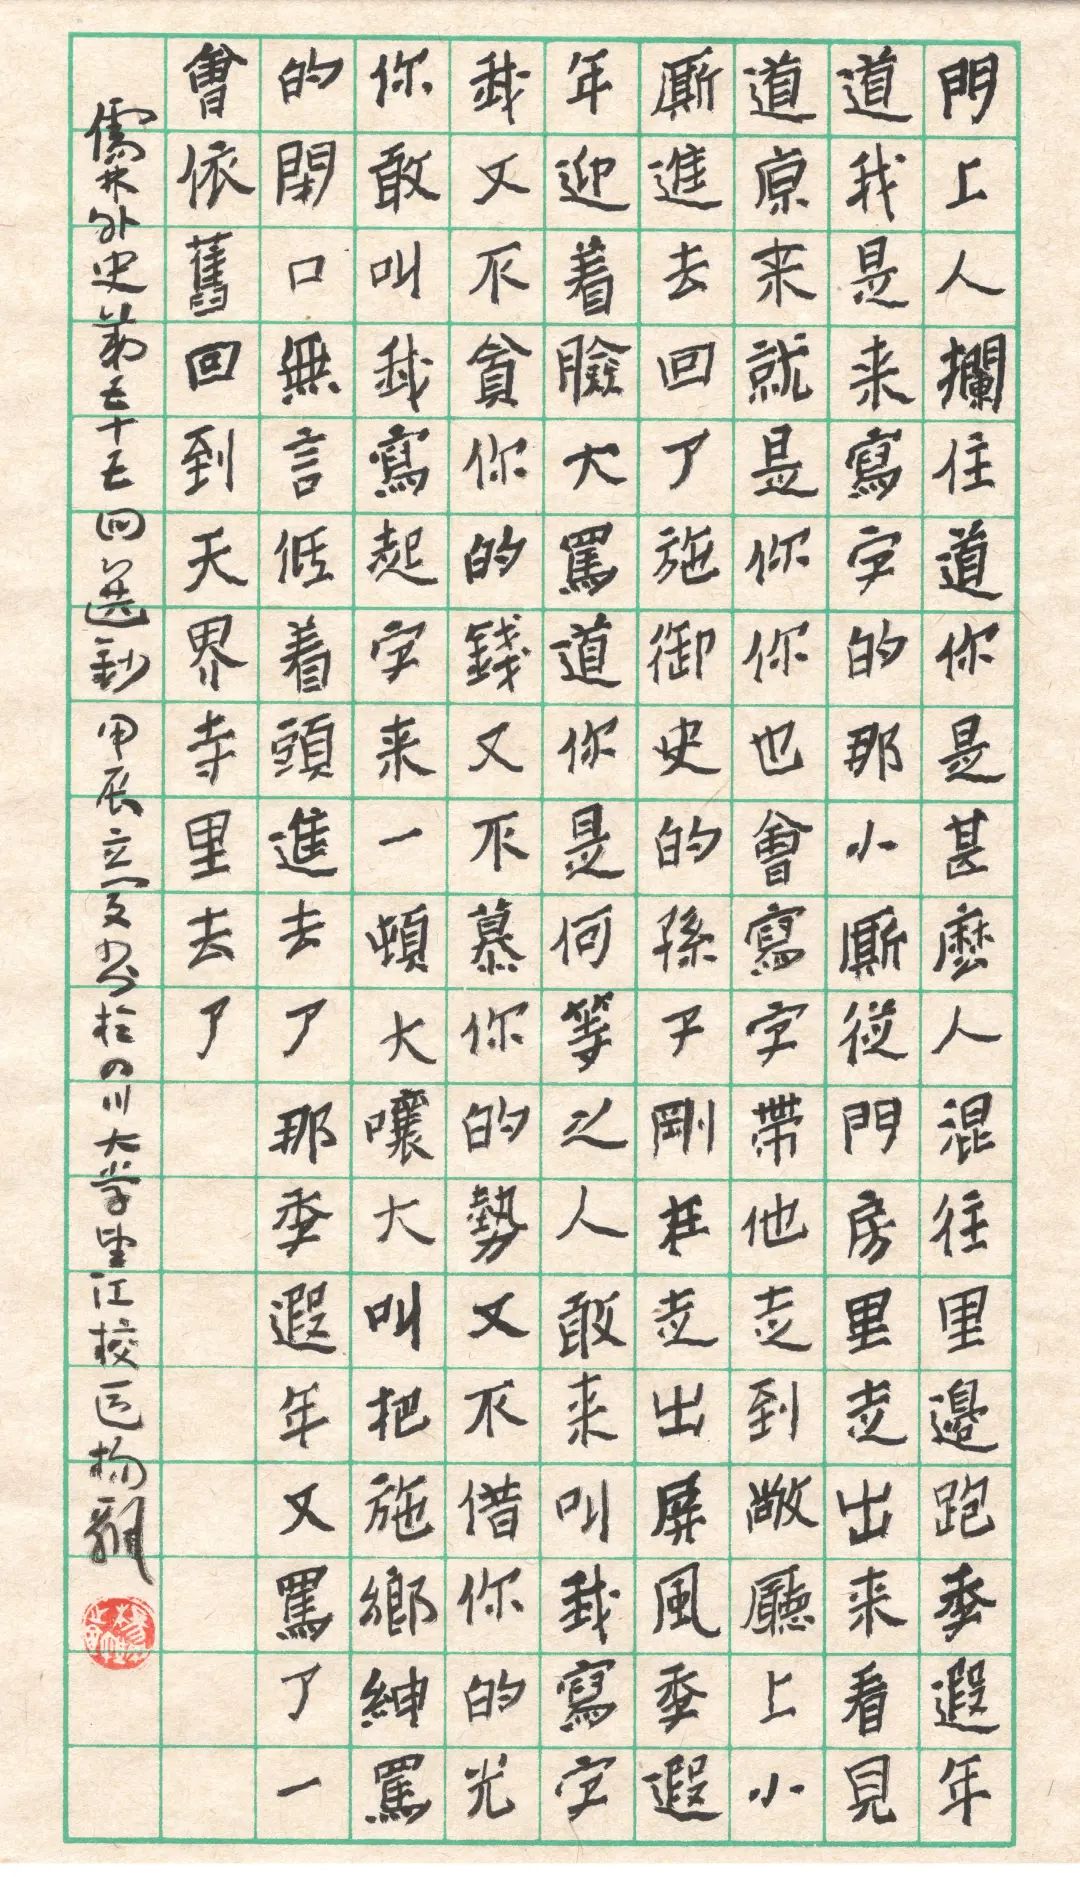 門上人攔住道你是甚麼人混往里邊跑季遐年
道我是来寫字的那小厮從門房里走出来看見
道原来就是你你也會寫字帶他走到敞廳上小
厮進去回了施御史的孫子剛在走出屏風季遐
年迎着臉大罵道你是何等之人敢来叫我寫字
我又不貪你的錢又不慕你的勢又不借你的光
你敢叫我寫起字来一頓大嚷大叫把施鄉紳罵
的閉口無言低着頭進去了那季遐年又罵了一
會依舊回到天界寺里去了
儒林外史第五十五回選鈔 甲辰立夏書於四川大学望江校区杨